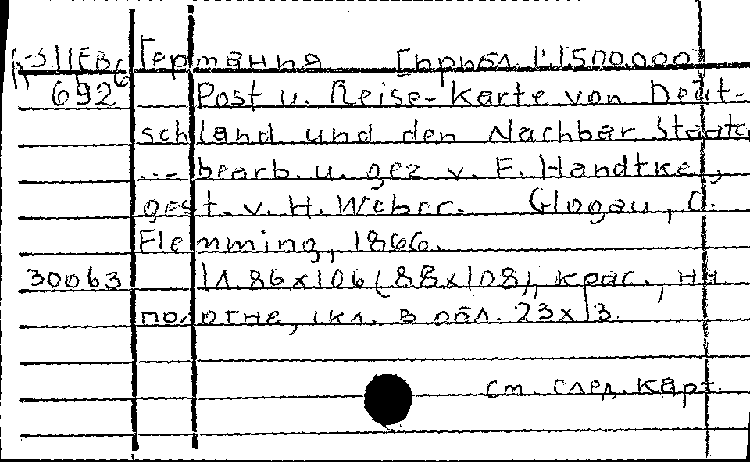 Германия [прибл. 1:1500.000]
692 Post u. Reise-Karte von Deut-
schland und den Nachbar Staaten
... bearb. u. gez v. F. Handtke,
gest. v. H. Weber. Glogau, C.
Flemming, 1866.
30063 1 л. 86x106 (88x108), крас., на
полотне, скл. в обл. 23x13.
См. след. карт.